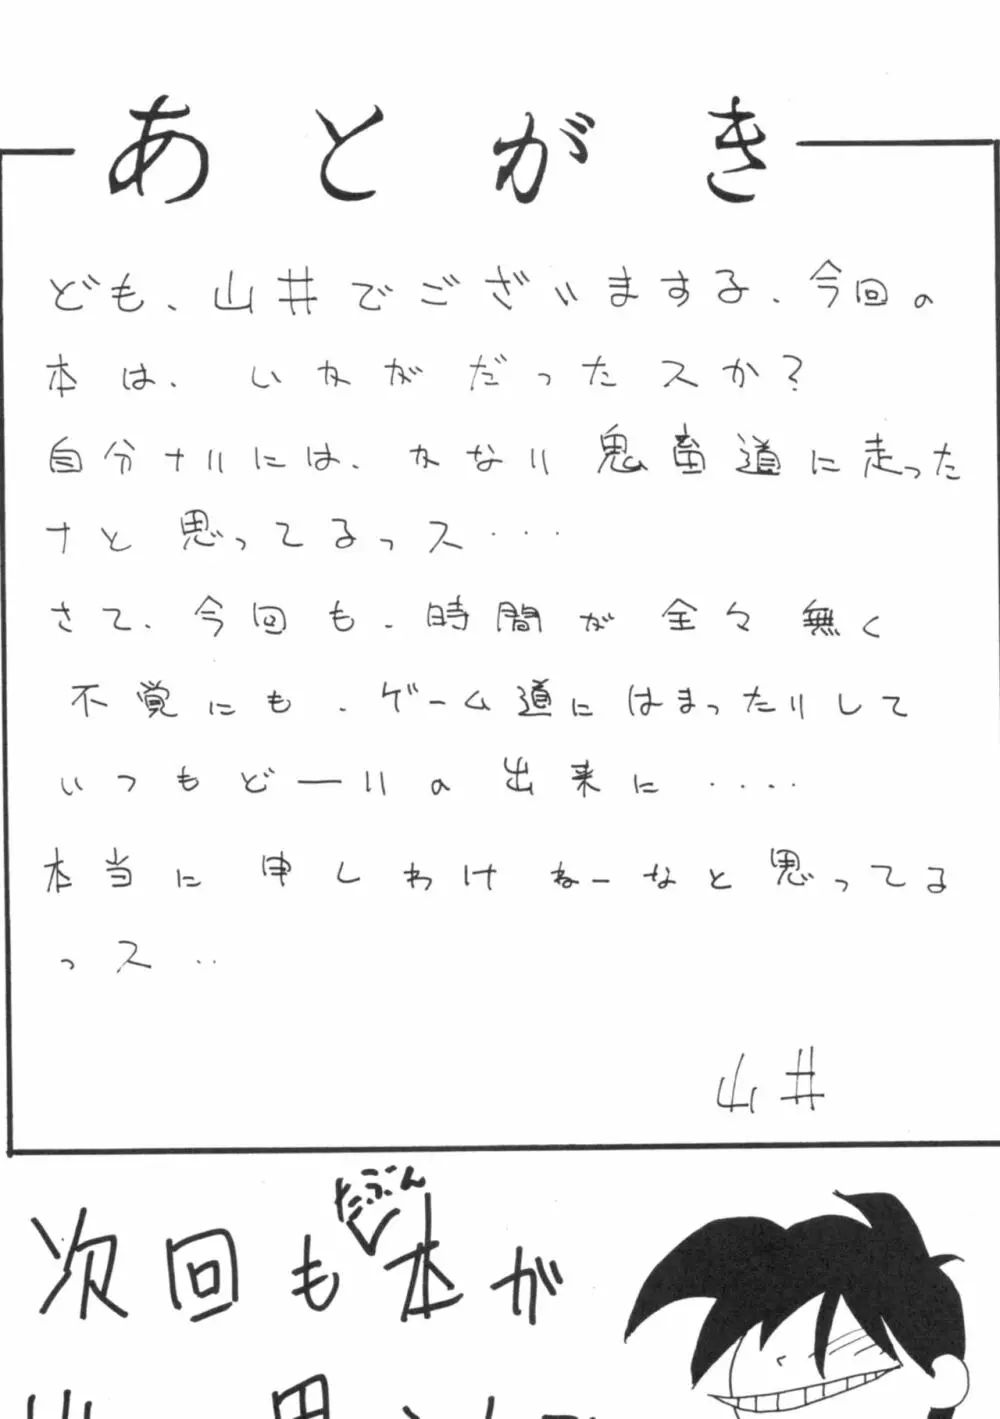 あとがき
ども、山井でございまする、今回の
本は、いかがだったスか？
自分ナリには、かなり鬼畜道に走った
ナと思ってるっス・・・
さて、今回も、時間が全々無く
不覚にも、ゲーム道にはまったりして
いつもどーりの出来に・・・・
本当に申しわけねーなと思ってる
っス‥
山井
たぶん
次回も本が